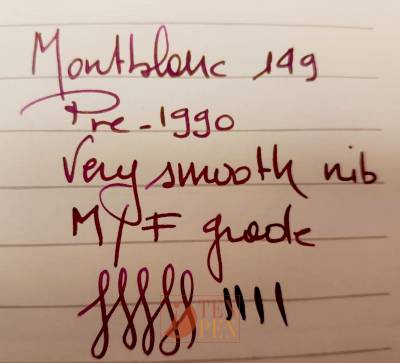 Montblanc 149
Pre-1990
Very smooth nib
M/F grade
TEN
PEN